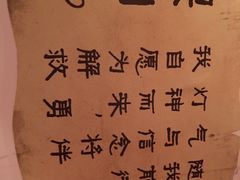 我自愿为解救
灯神而来,勇
气与信念将伴
随我前行